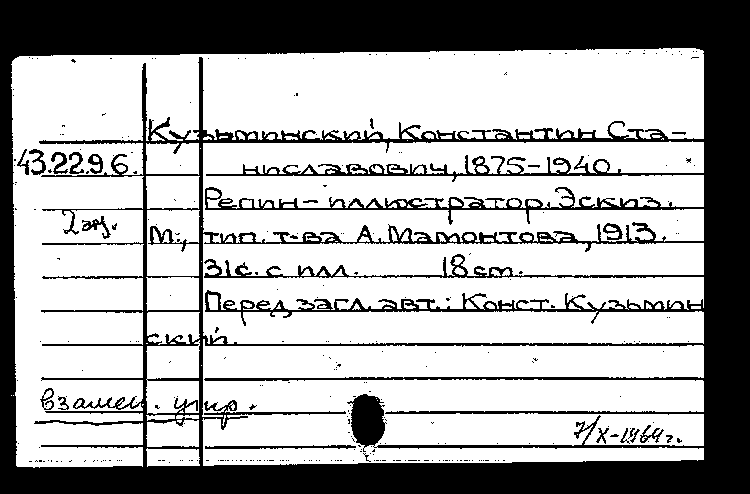 Кузьминский, Константин Ста-
43.22.9.6. ниславович, 1875-1940.
Репин - иллюстратор. Эскиз.
2 экз. М., тип. т-ва А. Мамонтова, 1913.
31с. с илл. 18 см.
Перед загл. авт.: Конст. Кузьмин
ский.
взамен.
7/X-1969 г.